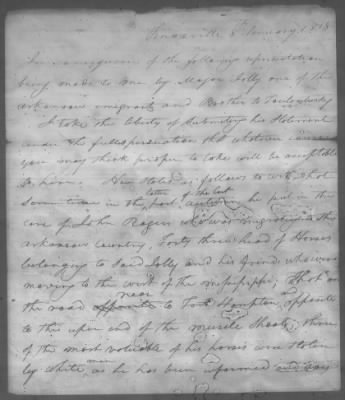 5 January 1818
In consequence of the following representation
being made to me by Major Jolly one of the
Arkansas emigrants and Brother to
I take the liberty of submitting his Statement
under the full persuation that whatever
you may think proper to take will be acceptable
to him. He States as follows to wit, that
latter of the last
Sometime in the part he put in the
care of John Rogers who was Emigrating to the
arkansaw Country, Forty three head of Horses
belonging to Said Jolly and his friend who were
moving to the west of the mississippi; That on
near
the road opposite to Fort Hampton, opposite
to the uper end of the muscle Shoals, three
of the most valuable of his horses were Stolen
men
by white, as he has been informed and